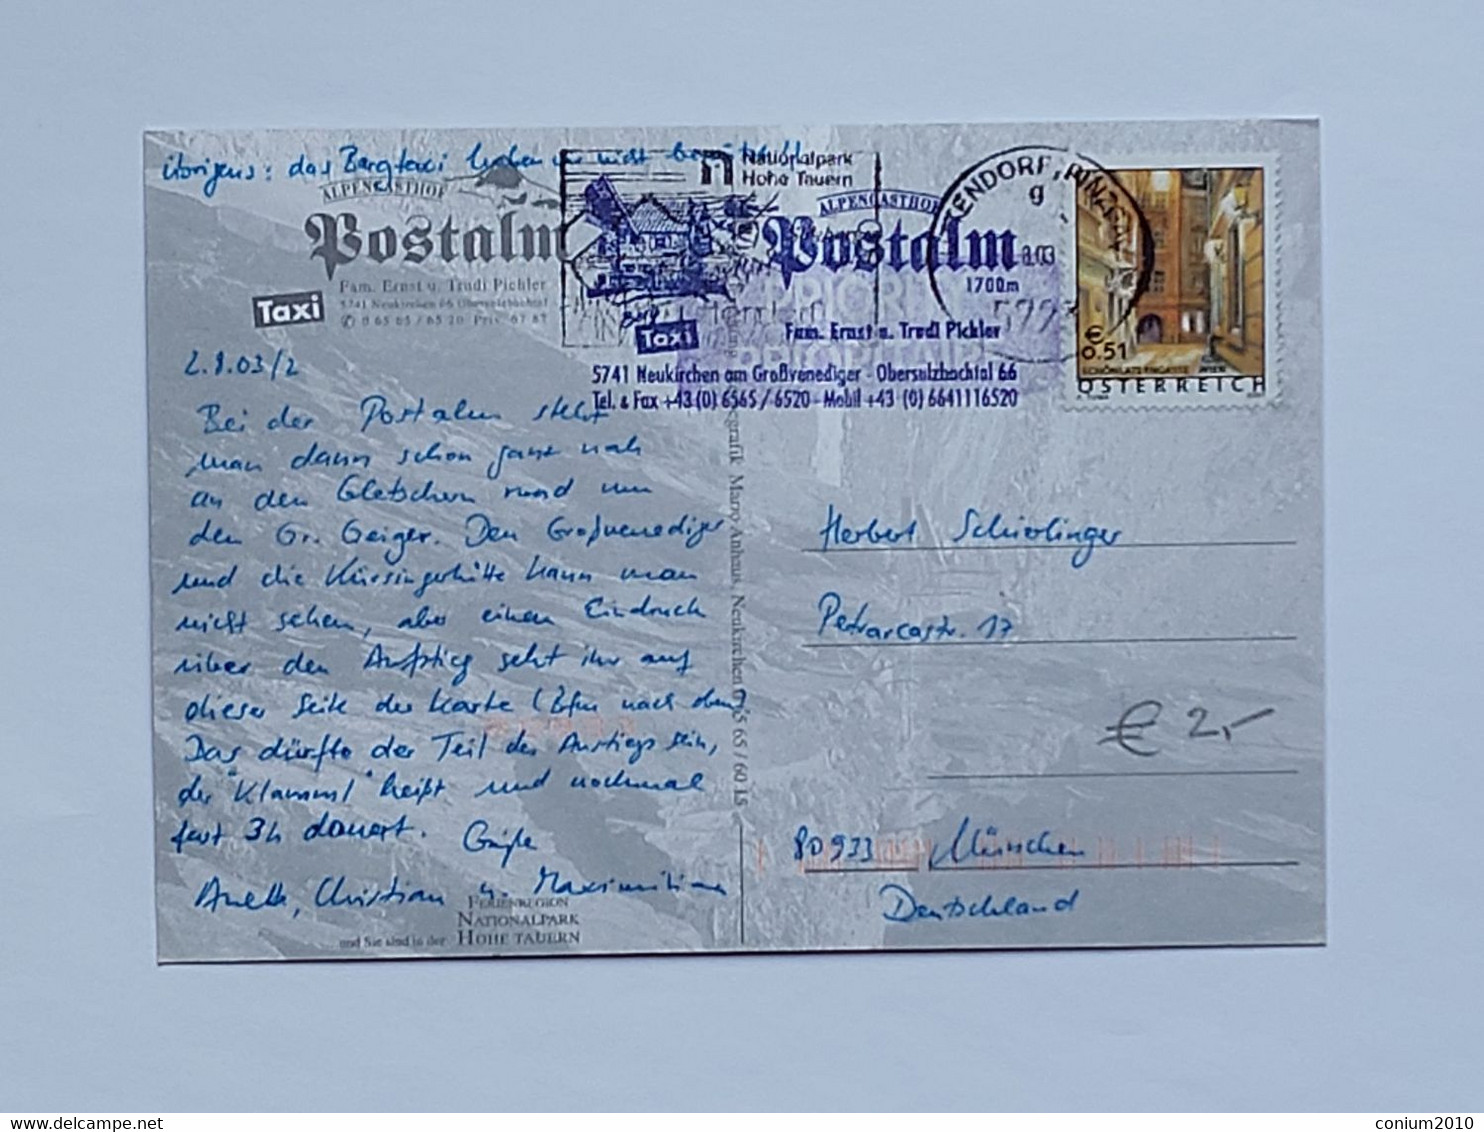 übrigens: das Bergtaxi haben wir nicht
ALPENGASTHOF
Postalm
Fam. Ernst u. Trudi Pichler
5741 Neukirchen 66 Obersulzbachtal
✆ 0 65 65 / 65 20 Priv. 67 87
Taxi
Nationalpark
Hohe Tauern
ALPENGASTHOF
Postalm
1700m
PRIORITY
PRIORITAIRE
Taxi
Fam. Ernst u. Trudi Pichler
5741 Neukirchen am Großvenediger - Obersulzbachtal 66
Tel. & Fax +43 (0) 6565 / 6520 - Mobil +43 (0) 6641116520
KENDORF, PINZGAU
g
8.03
€
0.51
SCHÖNLATERNGASSE, WIEN
ÖSTERREICH
2.8.03/2
Bei der Postalm steht
man dann schon ganz nah
an den Gletschern rund um
den Gr. Geiger. Den Großvenediger
und die Kürsingerhütte kann man
nicht sehen, aber einen Eindruck
über den Aufstieg seht ihr auf
dieser Seite der Karte (Bfm nach oben)
Das dürfte der Teil des Anstiegs sein,
der "Klamml" heißt und nochmal
fast 3h dauert. Grüße
Anette, Christian u. Maximilian
FERIENREGION
NATIONALPARK
und Sie sind in der HOHE TAUERN
grafik Marco Anhaus, Neukirchen 0 65 65 / 60 15
Herbert Schierlinger
Petrarcastr. 17
€ 2,-
80933 München
Deutschland
conium2010